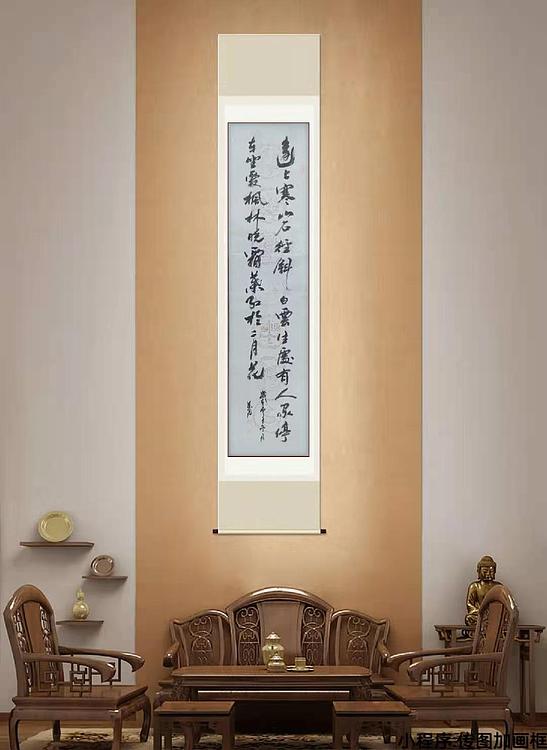 遠上寒山石徑斜白雲生處有人家停
車坐愛楓林晚霜葉紅於二月花
小程序 传图加画框